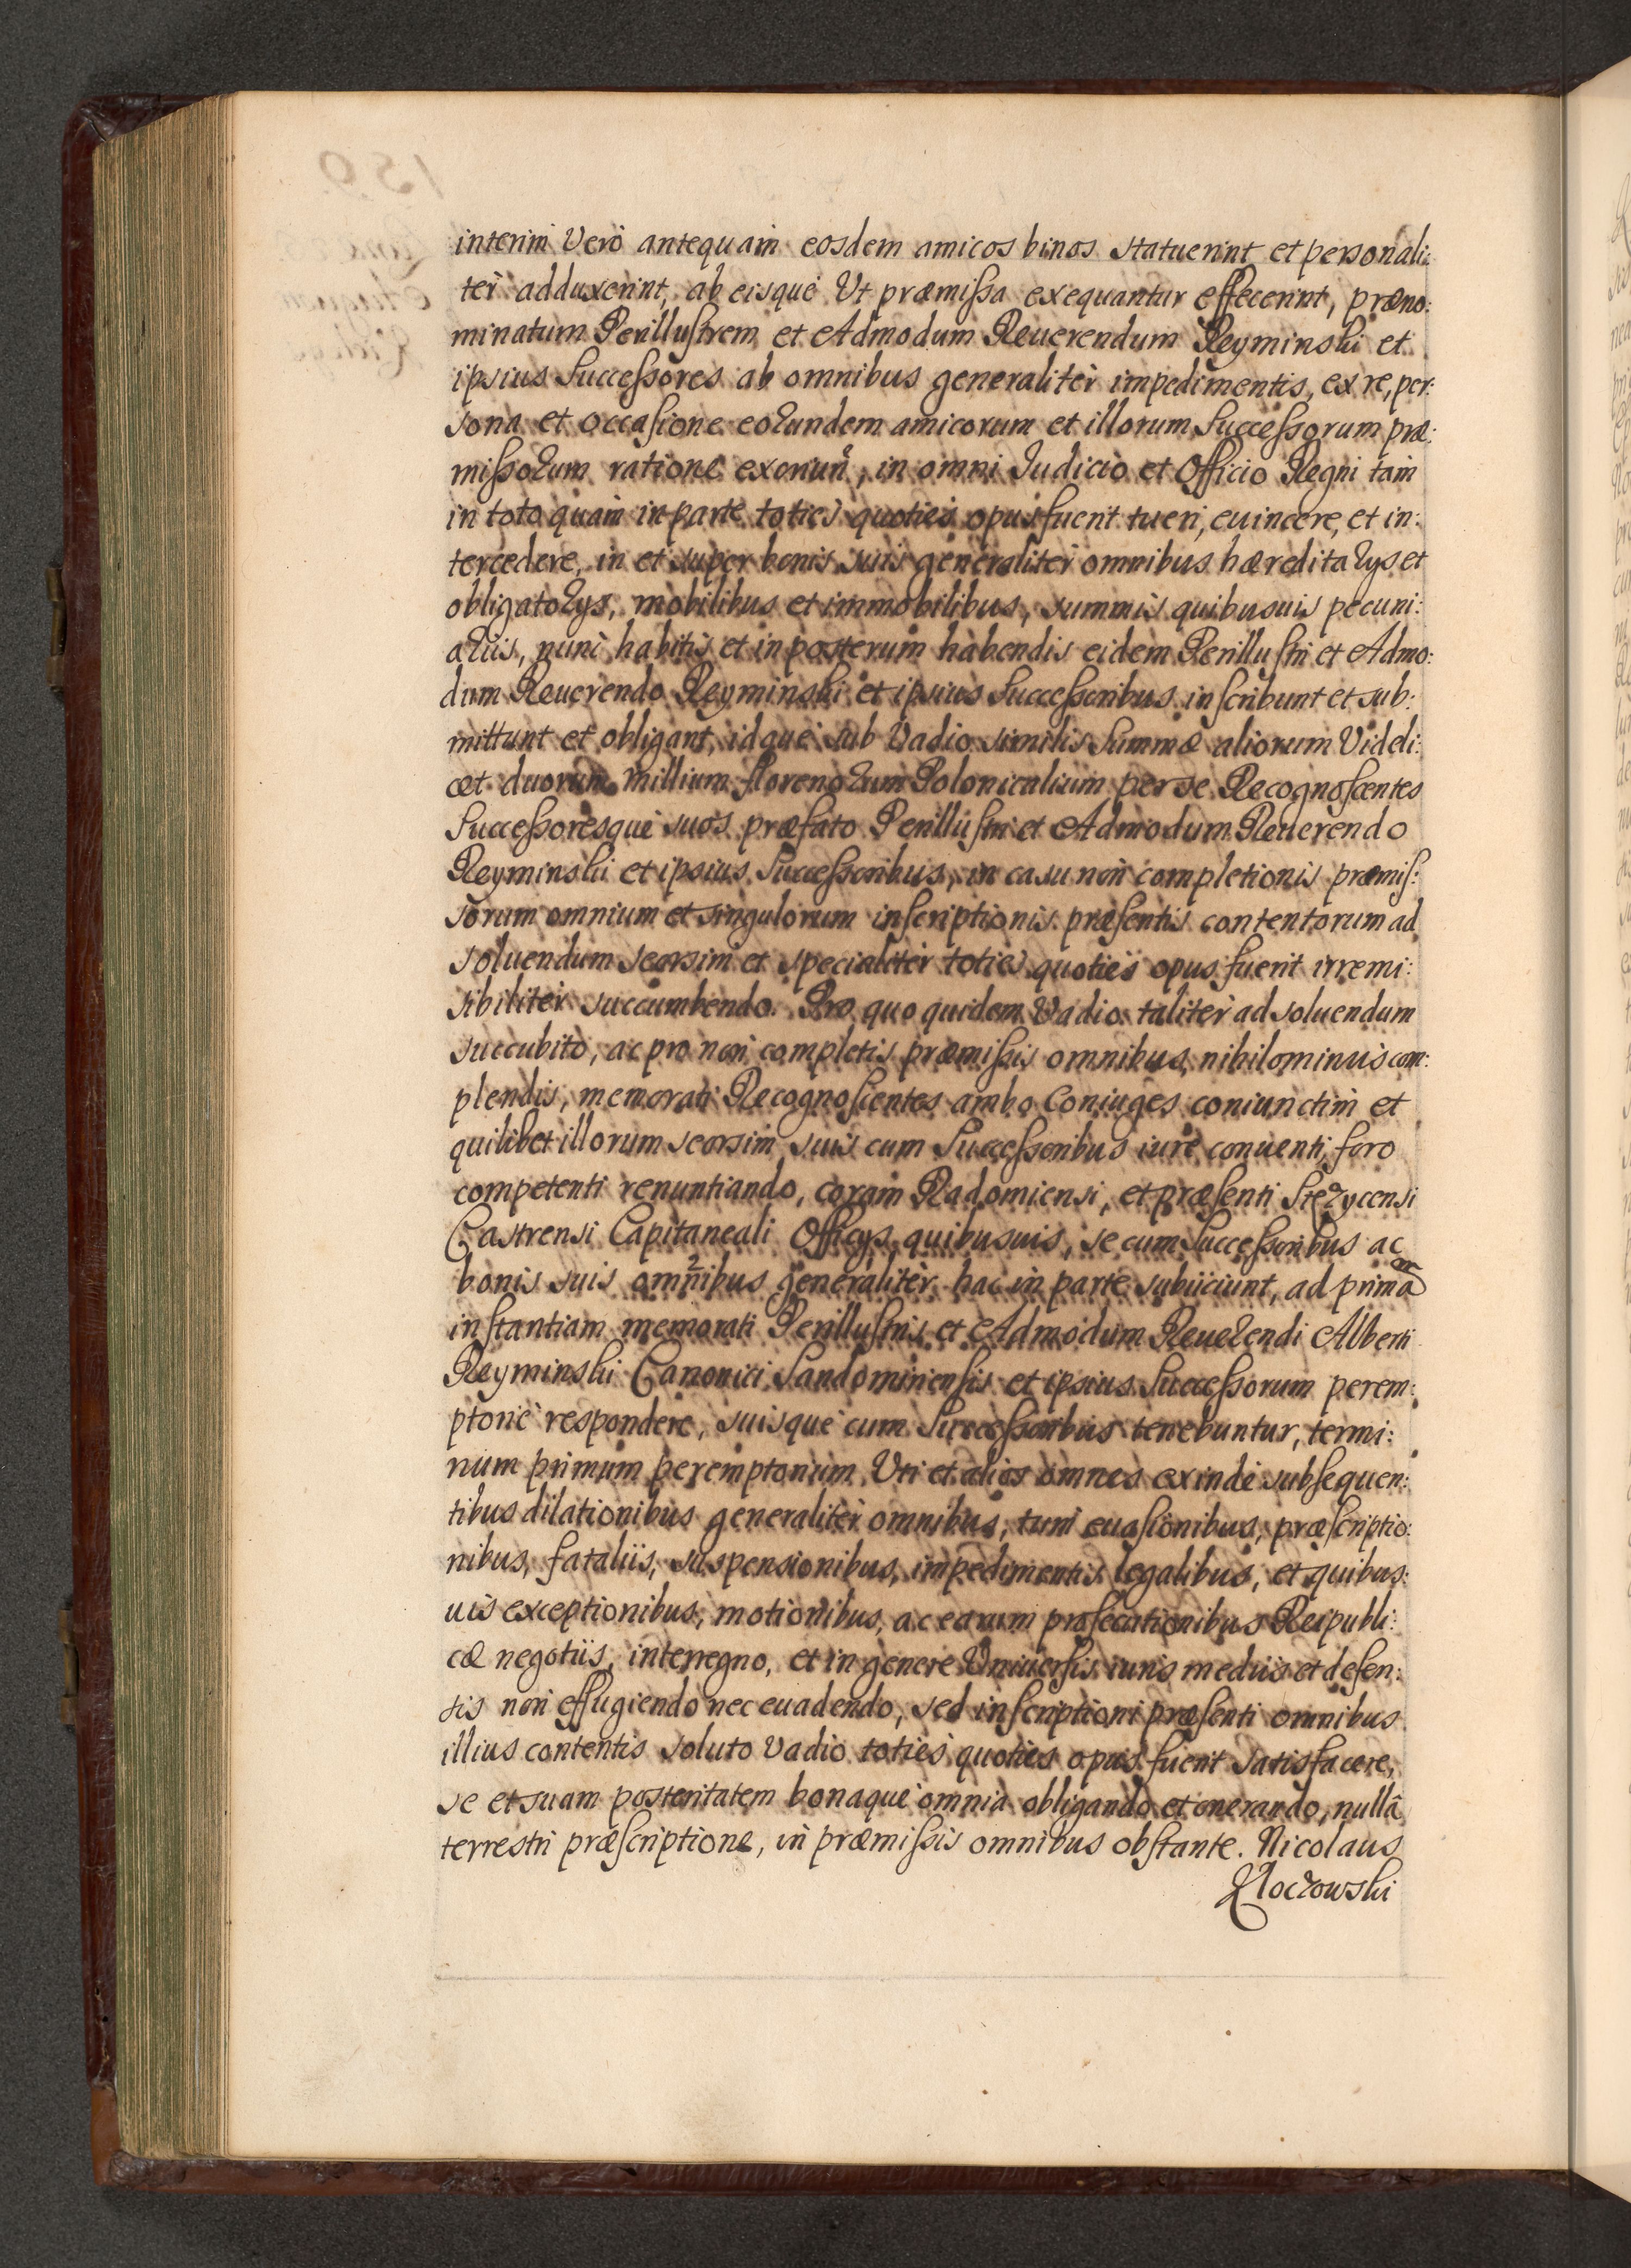 interim Verò antequam eosdem amicos binos statuerint et personali:
tèr adduxerint, ab eisquè Vt præmissa exequantur effecerint, præno:
minatum Perillustrem et Admodum Reuerendum Reyminski et
ipsius Successores ab omnibus generalitèr impedimentis, ex re, per:
sona et occasione eorundem amicorum et illorum Successorum præ:
missorum ratione exeriun̄, in omni Iudicio et Officio Regni tam
in toto quàm in parte totiès quotiès opus fuerit tueri, euincere, et in:
tercedere, in et super bonis suis generalitèr omnibus hæreditarys et
obligatorys, mobilibus et immobilibus, summis quibusuis pecuni:
ariis, nunc habitis et in posterum habendis eidem Perillustri et Admo:
dum Reuerendo Reyminski et ipsius Successoribus inscribunt et sub:
mittunt et obligant, idquè sub Vadio similis Summæ aliorum Videli:
cet duorum millium florenorum Polonicalium per se Recognoscentes
Successoresquè suos præfato Perillustri et Admodum Reuerendo
Reyminski et ipsius Successoribus, in casu non completionis præmis:
sorum omnium et singulorum inscriptionis præsentis contentorum ad
soluendum seorsim et specialitèr totiès quotiès opus fuerit irremi:
sibilitèr succumbendo. Pro quo quidem Vadio talitèr ad soluendum
succubito, ac pro non completis præmissis omnibus, nihilominus com:
plendis, memorati Recognoscentes ambo Coniuges coniunctim et
quilibet illorum seorsim, suis cum Successoribus iure conuenti, foro
competenti renuntiando, coram Radomiensi, et præsenti Stęzycensi
Castrensi Capitaneali Officys, quibusuis, se cum Successoribus ac
bonis suis omnibus generalitèr hac in parte subiiciunt, ad primam
instantiam memorati Perillustris et Admodum Reuerendi Alberti
Reyminski Canonici Sandomiriensis et ipsius Successorum perem:
ptoriè respondere, suisquè cum Successoribus tenebuntur, termi:
num primum peremptorium Vti et alios omnes exindè subsequen:
tibus dilationibus generalitèr omnibus, tum euasionibus, præscriptio:
nibus, fataliis, suspensionibus, impedimentis legalibus, et quibus:
uis exceptionibus, motionibus, ac earum prosecutionibus Reipubli:
cæ negotiis, interregno, et in genere Vniuersis iuris mediis et defen:
sis non effugiendo nec euadendo, sed inscriptioni præsenti omnibus
illius contentis soluto vadio totiès quotiès opus fuerit satisfacere,
se et suam posteritatem bonaquè omnia obligando et onerando, nullâ
terrestri præscriptione, in præmissis omnibus obstante. Nicolaus
Kłoczowski